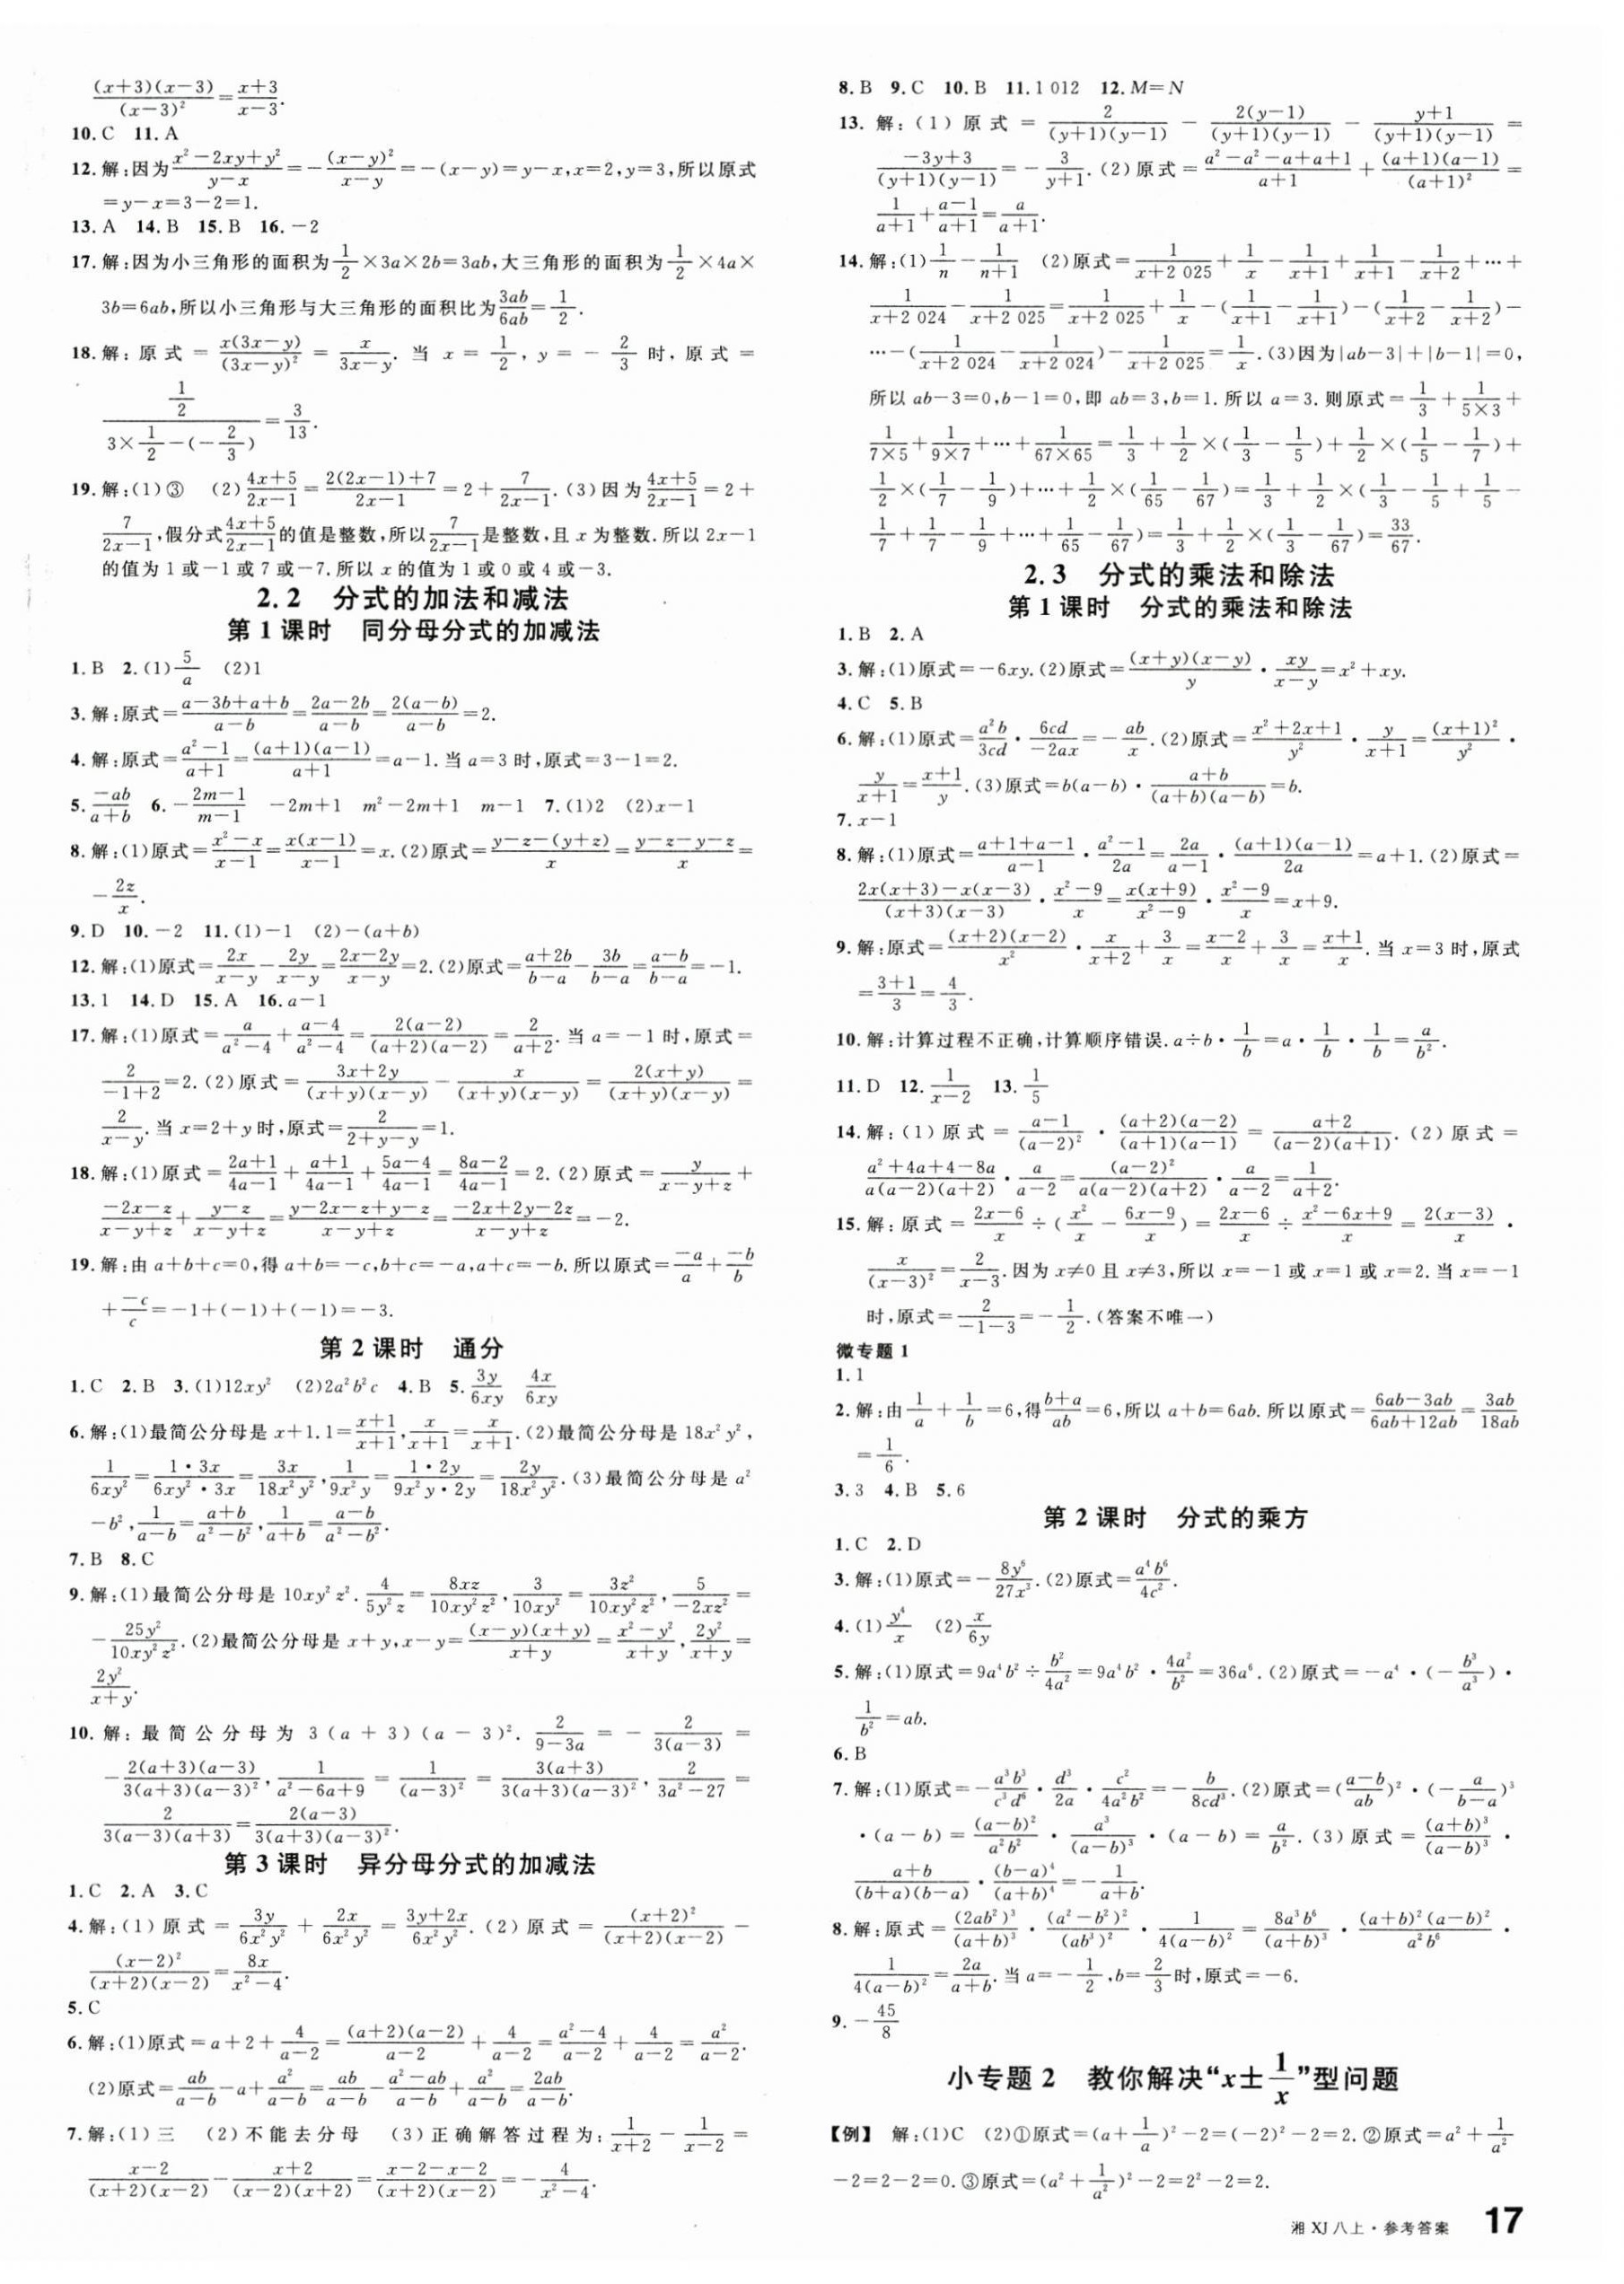 $\frac{(x+3)(x-3)}{(x-3)^2}=\frac{x+3}{x-3}$.
10. C 11. A
12. 解:因为$\frac{x^2-2xy+y^2}{y-x}=-\frac{(x-y)^2}{x-y}=-(x-y)=y-x$,x=2,y=3,所以原式
=y-x=3-2=1.
13. A 14. B 15. B 16. -2
17. 解:因为小三角形的面积为$\frac{1}{2}$×3a×2b=3ab,大三角形的面积为$\frac{1}{2}$×4a×
3b=6ab,所以小三角形与大三角形的面积比为$\frac{3ab}{6ab}=\frac{1}{2}$.
18. 解:原式=$\frac{x(3x-y)}{(3x-y)^2}=\frac{x}{3x-y}$. 当 x=$\frac{1}{2}$,y=-$\frac{2}{3}$时,原式=
$\frac{\frac{1}{2}}{3×\frac{1}{2}-(-\frac{2}{3})}=\frac{3}{13}$.
19. 解:(1)③ (2)$\frac{4x+5}{2x-1}=\frac{2(2x-1)+7}{2x-1}=2+\frac{7}{2x-1}$.(3)因为$\frac{4x+5}{2x-1}$=2+
$\frac{7}{2x-1}$,假分式$\frac{4x+5}{2x-1}$的值是整数,所以$\frac{7}{2x-1}$是整数,且 x 为整数.所以 2x-1
的值为 1 或-1 或 7 或-7.所以 x 的值为 1 或 0 或 4 或-3.
2.2 分式的加法和减法
第 1 课时 同分母分式的加减法
1. B 2. (1)$\frac{5}{a}$ (2)1
3. 解:原式=$\frac{a-3b+a+b}{a-b}=\frac{2a-2b}{a-b}=\frac{2(a-b)}{a-b}$=2.
4. 解:原式=$\frac{a^2-1}{a+1}=\frac{(a+1)(a-1)}{a+1}$=a-1. 当 a=3 时,原式=3-1=2.
5. $\frac{-ab}{a+b}$ 6. $-\frac{2m-1}{m-1}$ -2m+1 m²-2m+1 m-1 7. (1)2 (2)x-1
8. 解:(1)原式=$\frac{x^2-x}{x-1}=\frac{x(x-1)}{x-1}$=x.(2)原式=$\frac{y-z-(y+z)}{x}=\frac{y-z-y-z}{x}$=
$-\frac{2z}{x}$.
9. D 10. -2 11. (1)-1 (2)-(a+b)
12. 解:(1)原式=$\frac{2x}{x-y}-\frac{2y}{x-y}=\frac{2x-2y}{x-y}$=2.(2)原式=$\frac{a+2b}{b-a}-\frac{3b}{b-a}=\frac{a-b}{b-a}$=-1.
13. 1 14. D 15. A 16. a-1
17. 解:(1)原式=$\frac{a}{a^2-4}+\frac{a-4}{a^2-4}=\frac{2(a-2)}{(a+2)(a-2)}=\frac{2}{a+2}$. 当 a=-1 时,原式=
$\frac{2}{-1+2}$=2.(2)原式=$\frac{3x+2y}{(x+y)(x-y)}-\frac{x}{(x+y)(x-y)}=\frac{2(x+y)}{(x+y)(x-y)}$=
$\frac{2}{x-y}$. 当 x=2+y 时,原式=$\frac{2}{2+y-y}$=1.
18. 解:(1)原式=$\frac{2a+1}{4a-1}+\frac{a+1}{4a-1}+\frac{5a-4}{4a-1}=\frac{8a-2}{4a-1}$=2.(2)原式=$\frac{y}{x-y+z}$+
$\frac{-2x-z}{x-y+z}+\frac{y-z}{x-y+z}=\frac{y-2x-z+y-z}{x-y+z}=\frac{-2x+2y-2z}{x-y+z}$=-2.
19. 解:由 a+b+c=0,得 a+b=-c,b+c=-a,a+c=-b. 所以原式=$\frac{-a}{a}+\frac{-b}{b}$
+$\frac{-c}{c}$=-1+(-1)+(-1)=-3.
第 2 课时 通分
1. C 2. B 3. (1)12xy² (2)2a²b²c 4. B 5. $\frac{3y}{6xy}$ $\frac{4x}{6xy}$
6. 解:(1)最简公分母是 x+1. 1=$\frac{x+1}{x+1}$,$\frac{x}{x+1}=\frac{x}{x+1}$.(2)最简公分母是 18x²y²,
$\frac{1}{6xy^2}=\frac{1·3x}{6xy^2·3x}=\frac{3x}{18x^2y^2}$,$\frac{1}{9x^2y}=\frac{1·2y}{9x^2y·2y}=\frac{2y}{18x^2y^2}$.(3)最简公分母是 a²
-b²,$\frac{1}{a-b}=\frac{a+b}{a^2-b^2}$,$\frac{1}{a+b}=\frac{a-b}{a^2-b^2}$.
7. B 8. C
9. 解:(1)最简公分母是 10xy²z². $\frac{4}{5y^2z}=\frac{8xz}{10xy^2z^2}$,$\frac{3}{10xy^2}=\frac{3z^2}{10xy^2z^2}$,$\frac{5}{-2xz^2}$=
$-\frac{25y^2}{10xy^2z^2}$.(2)最简公分母是 x+y,x-y=$\frac{(x-y)(x+y)}{x+y}=\frac{x^2-y^2}{x+y}$,$\frac{2y^2}{x+y}$=
$\frac{2y^2}{x+y}$.
10. 解:最简公分母为 3(a+3)(a-3)². $\frac{2}{9-3a}=-\frac{2}{3(a-3)}$=
$-\frac{2(a+3)(a-3)}{3(a+3)(a-3)^2}$,$\frac{1}{a^2-6a+9}=\frac{1}{(a-3)^2}=\frac{3(a+3)}{3(a+3)(a-3)^2}$,$\frac{2}{3a^2-27}$=
$\frac{2}{3(a-3)(a+3)}=\frac{2(a-3)}{3(a+3)(a-3)^2}$.
第 3 课时 异分母分式的加减法
1. C 2. A 3. C
4. 解:(1)原式=$\frac{3y}{6x^2y^2}+\frac{2x}{6x^2y^2}=\frac{3y+2x}{6x^2y^2}$.(2)原式=$\frac{(x+2)^2}{(x+2)(x-2)}$-
$\frac{(x-2)^2}{(x+2)(x-2)}=\frac{8x}{x^2-4}$.
5. C
6. 解:(1)原式=a+2+$\frac{4}{a-2}=\frac{(a+2)(a-2)}{a-2}+\frac{4}{a-2}=\frac{a^2-4}{a-2}+\frac{4}{a-2}=\frac{a^2}{a-2}$.
(2)原式=$\frac{ab}{a-b}-a+\frac{a^2}{a-b}=\frac{ab}{a-b}-\frac{a^2-ab}{a-b}+\frac{a^2}{a-b}=\frac{2ab}{a-b}$.
7. 解:(1)三 (2)不能去分母 (3)正确解答过程为:$\frac{1}{x+2}-\frac{1}{x-2}$=
$\frac{x-2}{(x+2)(x-2)}-\frac{x+2}{(x-2)(x+2)}=\frac{x-2-x-2}{(x+2)(x-2)}=-\frac{4}{x^2-4}$.
8. B 9. C 10. B 11. 1 012 12. M=N
13. 解:(1)原式=$\frac{2}{(y+1)(y-1)}-\frac{2(y-1)}{(y+1)(y-1)}-\frac{y+1}{(y+1)(y-1)}$=
$\frac{-3y+3}{(y+1)(y-1)}=-\frac{3}{y+1}$.(2)原式=$\frac{a^2-a^2-a+a+1}{a+1}+\frac{(a+1)(a-1)}{(a+1)^2}$=
$\frac{1}{a+1}+\frac{a-1}{a+1}=\frac{a}{a+1}$.
14. 解:(1)$\frac{1}{n}-\frac{1}{n+1}$ (2)原式=$\frac{1}{x+2 025}+\frac{1}{x}-\frac{1}{x+1}+\frac{1}{x+1}-\frac{1}{x+2}$+…+
$\frac{1}{x+2 024}-\frac{1}{x+2 025}=\frac{1}{x+2 025}+\frac{1}{x}-(\frac{1}{x+1}-\frac{1}{x+1})-(\frac{1}{x+2}-\frac{1}{x+2})$-
…-$(\frac{1}{x+2 024}-\frac{1}{x+2 024})-\frac{1}{x+2 025}=\frac{1}{x}$.(3)因为|ab-3|+|b-1|=0,
所以 ab-3=0,b-1=0,即 ab=3,b=1. 所以 a=3. 则原式=$\frac{1}{3}+\frac{1}{5×3}$+
$\frac{1}{7×5}+\frac{1}{9×7}+…+\frac{1}{67×65}=\frac{1}{3}+\frac{1}{2}×(\frac{1}{3}-\frac{1}{5})+\frac{1}{2}×(\frac{1}{5}-\frac{1}{7})$+
$\frac{1}{2}×(\frac{1}{7}-\frac{1}{9})+…+\frac{1}{2}×(\frac{1}{65}-\frac{1}{67})=\frac{1}{3}+\frac{1}{2}×(\frac{1}{3}-\frac{1}{5}+\frac{1}{5}-$
$\frac{1}{7}+\frac{1}{7}-\frac{1}{9}+…+\frac{1}{65}-\frac{1}{67})=\frac{1}{3}+\frac{1}{2}×(\frac{1}{3}-\frac{1}{67})=\frac{33}{67}$.
2.3 分式的乘法和除法
第 1 课时 分式的乘法和除法
1. B 2. A
3. 解:(1)原式=-6xy.(2)原式=$\frac{(x+y)(x-y)}{y}·\frac{xy}{x-y}$=x²+xy.
4. C 5. B
6. 解:(1)原式=$\frac{a^2b}{3cd}·\frac{6cd}{-2ax}=-\frac{ab}{x}$.(2)原式=$\frac{x^2+2x+1}{y^2}·\frac{y}{x+1}=\frac{(x+1)^2}{y^2}$·
$\frac{y}{x+1}=\frac{x+1}{y}$.(3)原式=b(a-b)·$\frac{a+b}{(a+b)(a-b)}$=b.
7. x-1
8. 解:(1)原式=$\frac{a+1+a-1}{a-1}·\frac{a^2-1}{2a}=\frac{2a}{a-1}·\frac{(a+1)(a-1)}{2a}$=a+1.(2)原式=
$\frac{2x(x+3)-x(x-3)}{(x+3)(x-3)}·\frac{x^2-9}{x}=\frac{x(x+9)}{x^2-9}·\frac{x^2-9}{x}$=x+9.
9. 解:原式=$\frac{(x+2)(x-2)}{x^2}·\frac{x}{x+2}+\frac{3}{x}=\frac{x-2}{x}+\frac{3}{x}=\frac{x+1}{x}$. 当 x=3 时,原式
=$\frac{3+1}{3}=\frac{4}{3}$.
10. 解:计算过程不正确,计算顺序错误. a÷b·$\frac{1}{b}$=a·$\frac{1}{b}·\frac{1}{b}=\frac{a}{b^2}$.
11. D 12. $\frac{1}{x-2}$ 13. $\frac{1}{5}$
14. 解:(1)原式=$\frac{a-1}{(a-2)^2}·\frac{(a+2)(a-2)}{(a+1)(a-1)}=\frac{a+2}{(a-2)(a+1)}$.(2)原式=
$\frac{a^2+4a+4-8a}{a(a-2)(a+2)}·\frac{a}{a-2}=\frac{(a-2)^2}{a(a-2)(a+2)}·\frac{a}{a-2}=\frac{1}{a+2}$.
15. 解:原式=$\frac{2x-6}{x}÷(\frac{x^2}{x}-\frac{6x-9}{x})=\frac{2x-6}{x}÷\frac{x^2-6x+9}{x}=\frac{2(x-3)}{x}$·
$\frac{x}{(x-3)^2}=\frac{2}{x-3}$. 因为 x≠0 且 x≠3,所以 x=-1 或 x=1 或 x=2. 当 x=-1
时,原式=$\frac{2}{-1-3}=-\frac{1}{2}$.(答案不唯一)
微专题 1
1. 1
2. 解:由$\frac{1}{a}+\frac{1}{b}$=6,得$\frac{b+a}{ab}$=6,所以 a+b=6ab. 所以原式=$\frac{6ab-3ab}{6ab+12ab}=\frac{3ab}{18ab}$
=$\frac{1}{6}$.
3. 3 4. B 5. 6
第 2 课时 分式的乘方
1. C 2. D
3. 解:(1)原式=$-\frac{8y^6}{27x^3}$.(2)原式=$\frac{a^4b^6}{4c^2}$.
4. (1)$\frac{y^4}{x}$ (2)$\frac{x}{6y}$
5. 解:(1)原式=9a⁴b²÷$\frac{b^2}{4a^2}$=9a⁴b²·$\frac{4a^2}{b^2}$=36a⁶.(2)原式=-a⁴·$(-\frac{b^3}{a^3})$·
$\frac{1}{b^2}$=ab.
6. B
7. 解:(1)原式=$-\frac{a^3b^3}{c^3d^6}·\frac{d^3}{2a}·\frac{c^2}{4a^2b^2}=-\frac{b}{8cd^3}$.(2)原式=$(\frac{a-b}{ab})^2·(-\frac{a}{b-a})^3$
·(a-b)=$\frac{(a-b)^2}{a^2b^2}·\frac{a^3}{(a-b)^3}$·(a-b)=$\frac{a}{b^2}$.(3)原式=$\frac{(a+b)^3}{(a-b)^3}$·
$\frac{a+b}{(b+a)(b-a)}·\frac{(b-a)^4}{(a+b)^4}=-\frac{1}{a+b}$.
8. 解:原式=$\frac{(2ab^2)^3}{(a+b)^3}·\frac{(a^2-b^2)^2}{(ab^3)^2}·\frac{1}{4(a-b)^2}=\frac{8a^3b^6}{(a+b)^3}·\frac{(a+b)^2(a-b)^2}{a^2b^6}$·
$\frac{1}{4(a-b)^2}=\frac{2a}{a+b}$. 当 a=$-\frac{1}{2}$,b=$\frac{2}{3}$时,原式=-6.
9. $-\frac{45}{8}$
小专题 2 教你解决“x±$\frac{1}{x}$”型问题
【例】 解:(1)C (2)①原式=$(a+\frac{1}{a})^2$-2=(-2)²-2=2. ②原式=a²+$\frac{1}{a^2}$
-2=2-2=0. ③原式=$(a^2+\frac{1}{a^2})^2$-2=2²-2=2.
湘 XJ 八上·参考答案 17